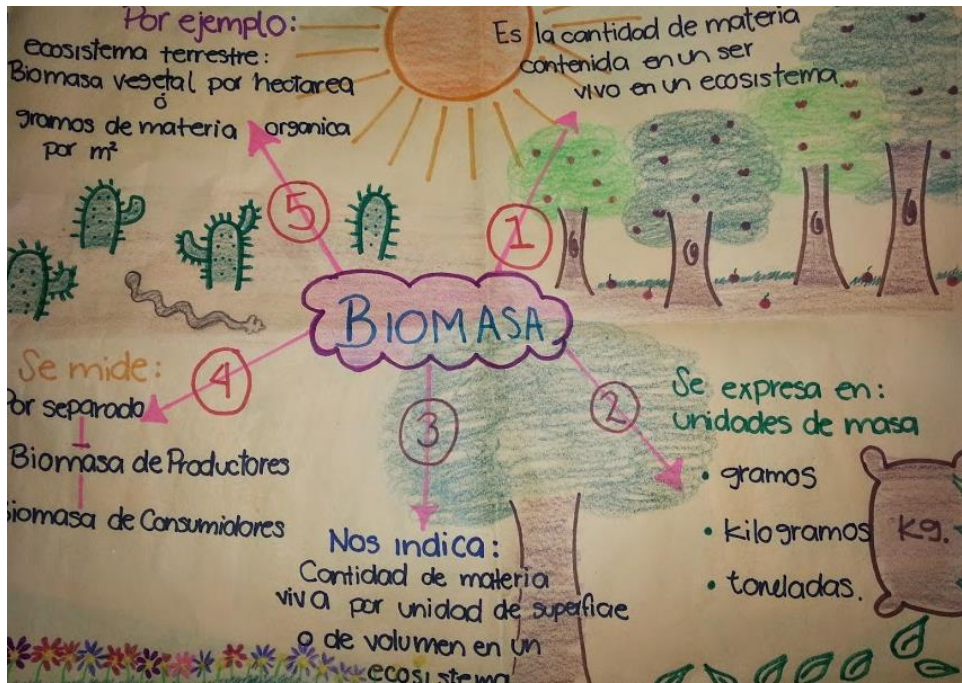 BIOMASA
1
Es la cantidad de materia
contenida en un ser
vivo en un ecosistema.
2
Se expresa en:
unidades de masa
• gramos
• kilogramos
• toneladas.
Kg.
3
Nos indica:
Cantidad de materia
viva por unidad de superficie
o de volumen en un
ecosistema
4
Se mide:
Por separado
Biomasa de Productores
Biomasa de Consumidores
5
Por ejemplo:
ecosistema terrestre:
Biomasa vegetal por hectarea
ó
gramos de materia organica
por m²